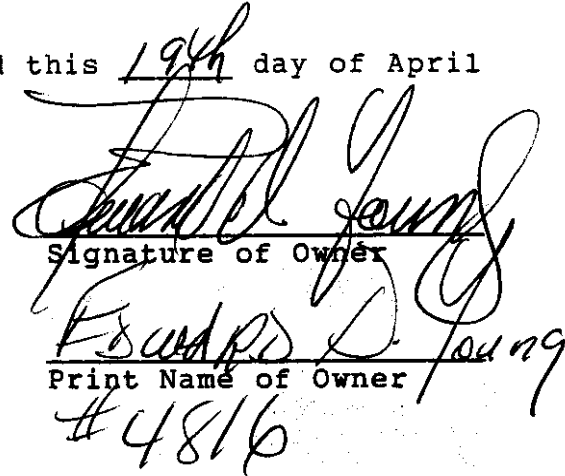 this 19th day of April
Young
Signature of Owner
Edward S. Young
Print Name of Owner
#4816